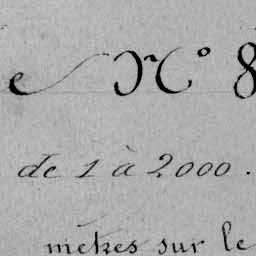 e N° 8
de 1 à 2,000.
mètres sur le